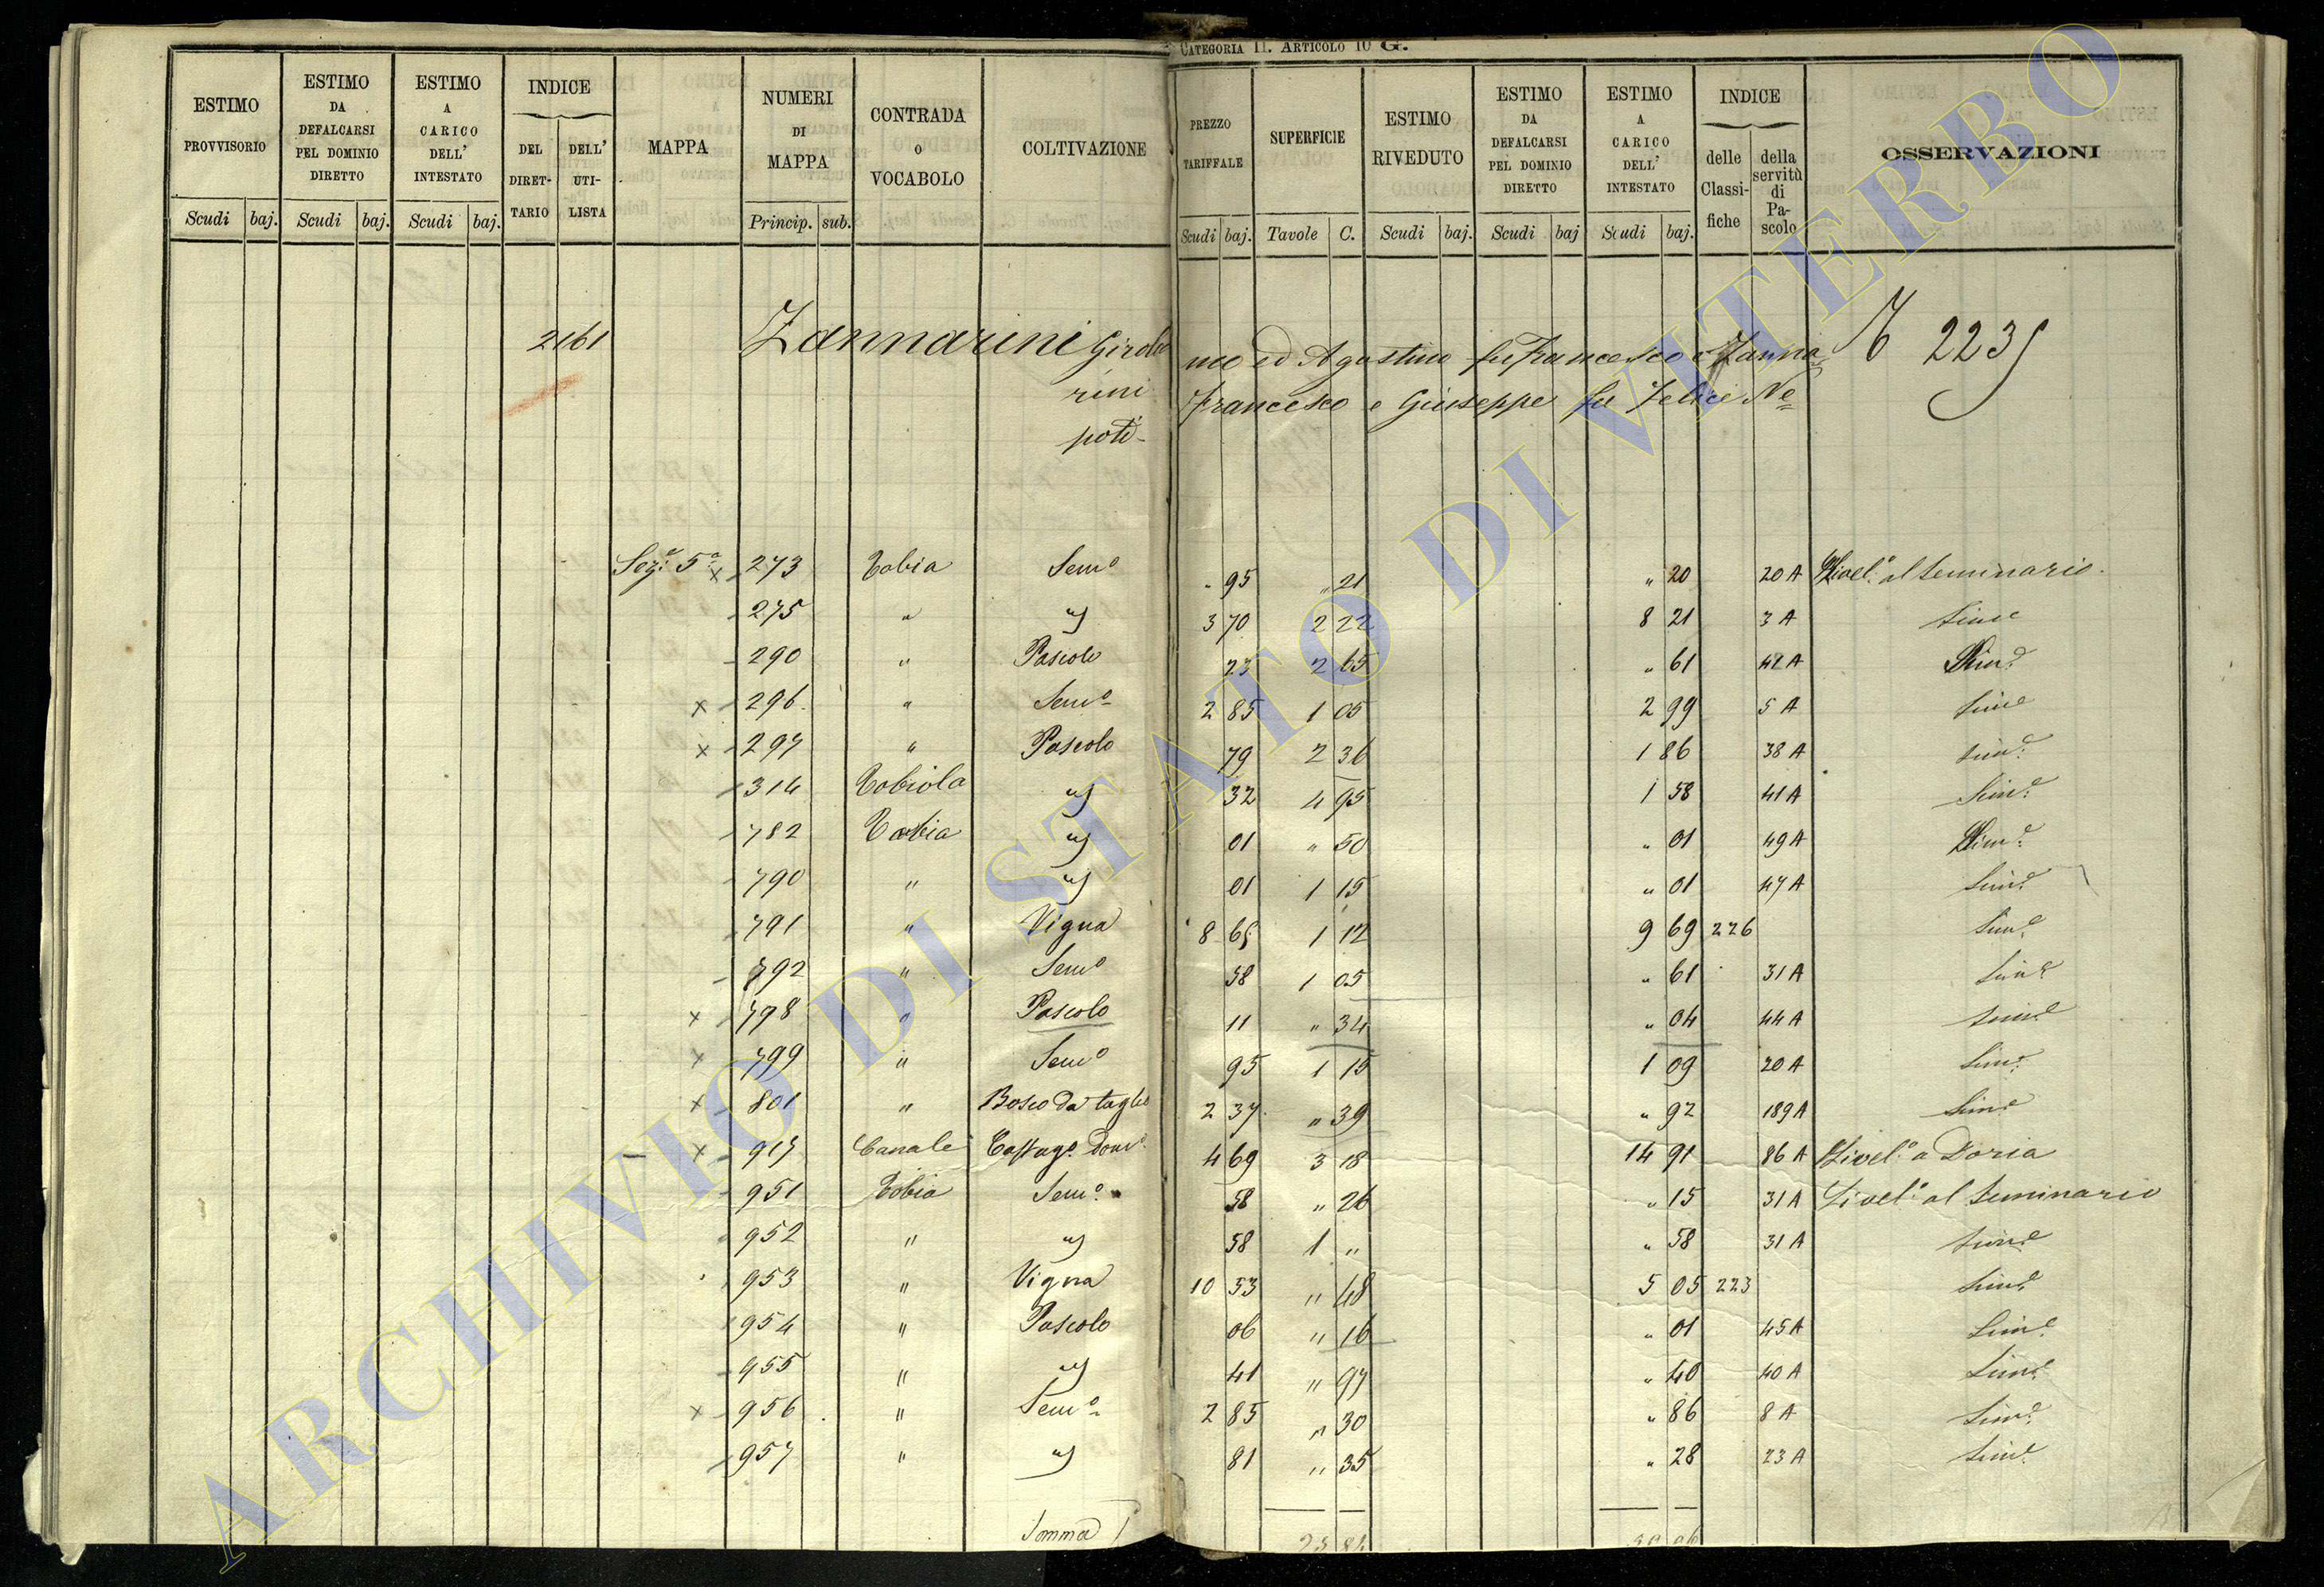 CATEGORIA II. ARTICOLO 10 G.
ESTIMO PROVVISORIO
ESTIMO DA DEFALCARSI PEL DOMINIO DIRETTO
ESTIMO A CARICO DELL' INTESTATO
INDICE
DEL DIRET-TARIO
DELL' UTI-LISTA
MAPPA
NUMERI DI MAPPA
CONTRADA O VOCABOLO
COLTIVAZIONE
PREZZO TARIFFALE
SUPERFICIE
ESTIMO RIVEDUTO
ESTIMO DA DEFALCARSI PEL DOMINIO DIRETTO
ESTIMO A CARICO DELL' INTESTATO
INDICE
delle Classi-fiche
della servitù di Pa-scolo
OSSERVAZIONI
Scudi baj. Scudi baj. Scudi baj. Princip. sub. Scudi baj. Tavole C. Scudi baj. Scudi baj Scudi baj.
2161 Zannarini Girola mo ed Agostino fu Francesco e Zanna 2235
rini Francesco e Giuseppe fu Felice Ne
poti
Sez.e 5a x 273 Tobia Semo " 95 " 21 " 20 20 A Livel.o al Seminario.
275 " " 3 70 2 22 8 21 3 A Sime
290 " Pascolo 23 2 65 " 61 42 A Sime
x 296. " Semo 2 85 1 05 2 99 5 A Sime
x 297 " Pascolo 79 2 36 1 86 38 A Sime
314 Tobiola " 32 4 95 1 58 41 A Sime
782 Tobia " 01 " 50 " 01 49 A Sime
790 " " 01 1 15 " 01 47 A Sime
791 " Vigna 8 65 1 12 9 69 226 Sime
792 " Semo 58 1 05 " 61 31 A Sime
x 798 " Pascolo 11 " 34 " 04 44 A Sime
x 799 " Semo 95 1 15 1 09 20 A Sime
x 801 " Bosco da taglio 2 37 " 39 " 92 189 A Sime
x 917 Canale Castag.o Dom.o 4 69 3 18 14 91 86 A Livel.o a Doria
951 Tobia Semo 58 " 26 " 15 31 A Livel.o al Seminario
952 " " 58 1 " " 58 31 A Sime
953 " Vigna 10 53 " 48 5 05 223 Sime
954 " Pascolo 06 " 16 " 01 45 A Sime
955 " " 41 " 97 " 40 40 A Sime
x 956 " Semo 2 85 " 30 " 86 8 A Sime
957 " " 81 " 35 " 28 23 A Sime
Somma
ARCHIVIO DI STATO DI VITERBO